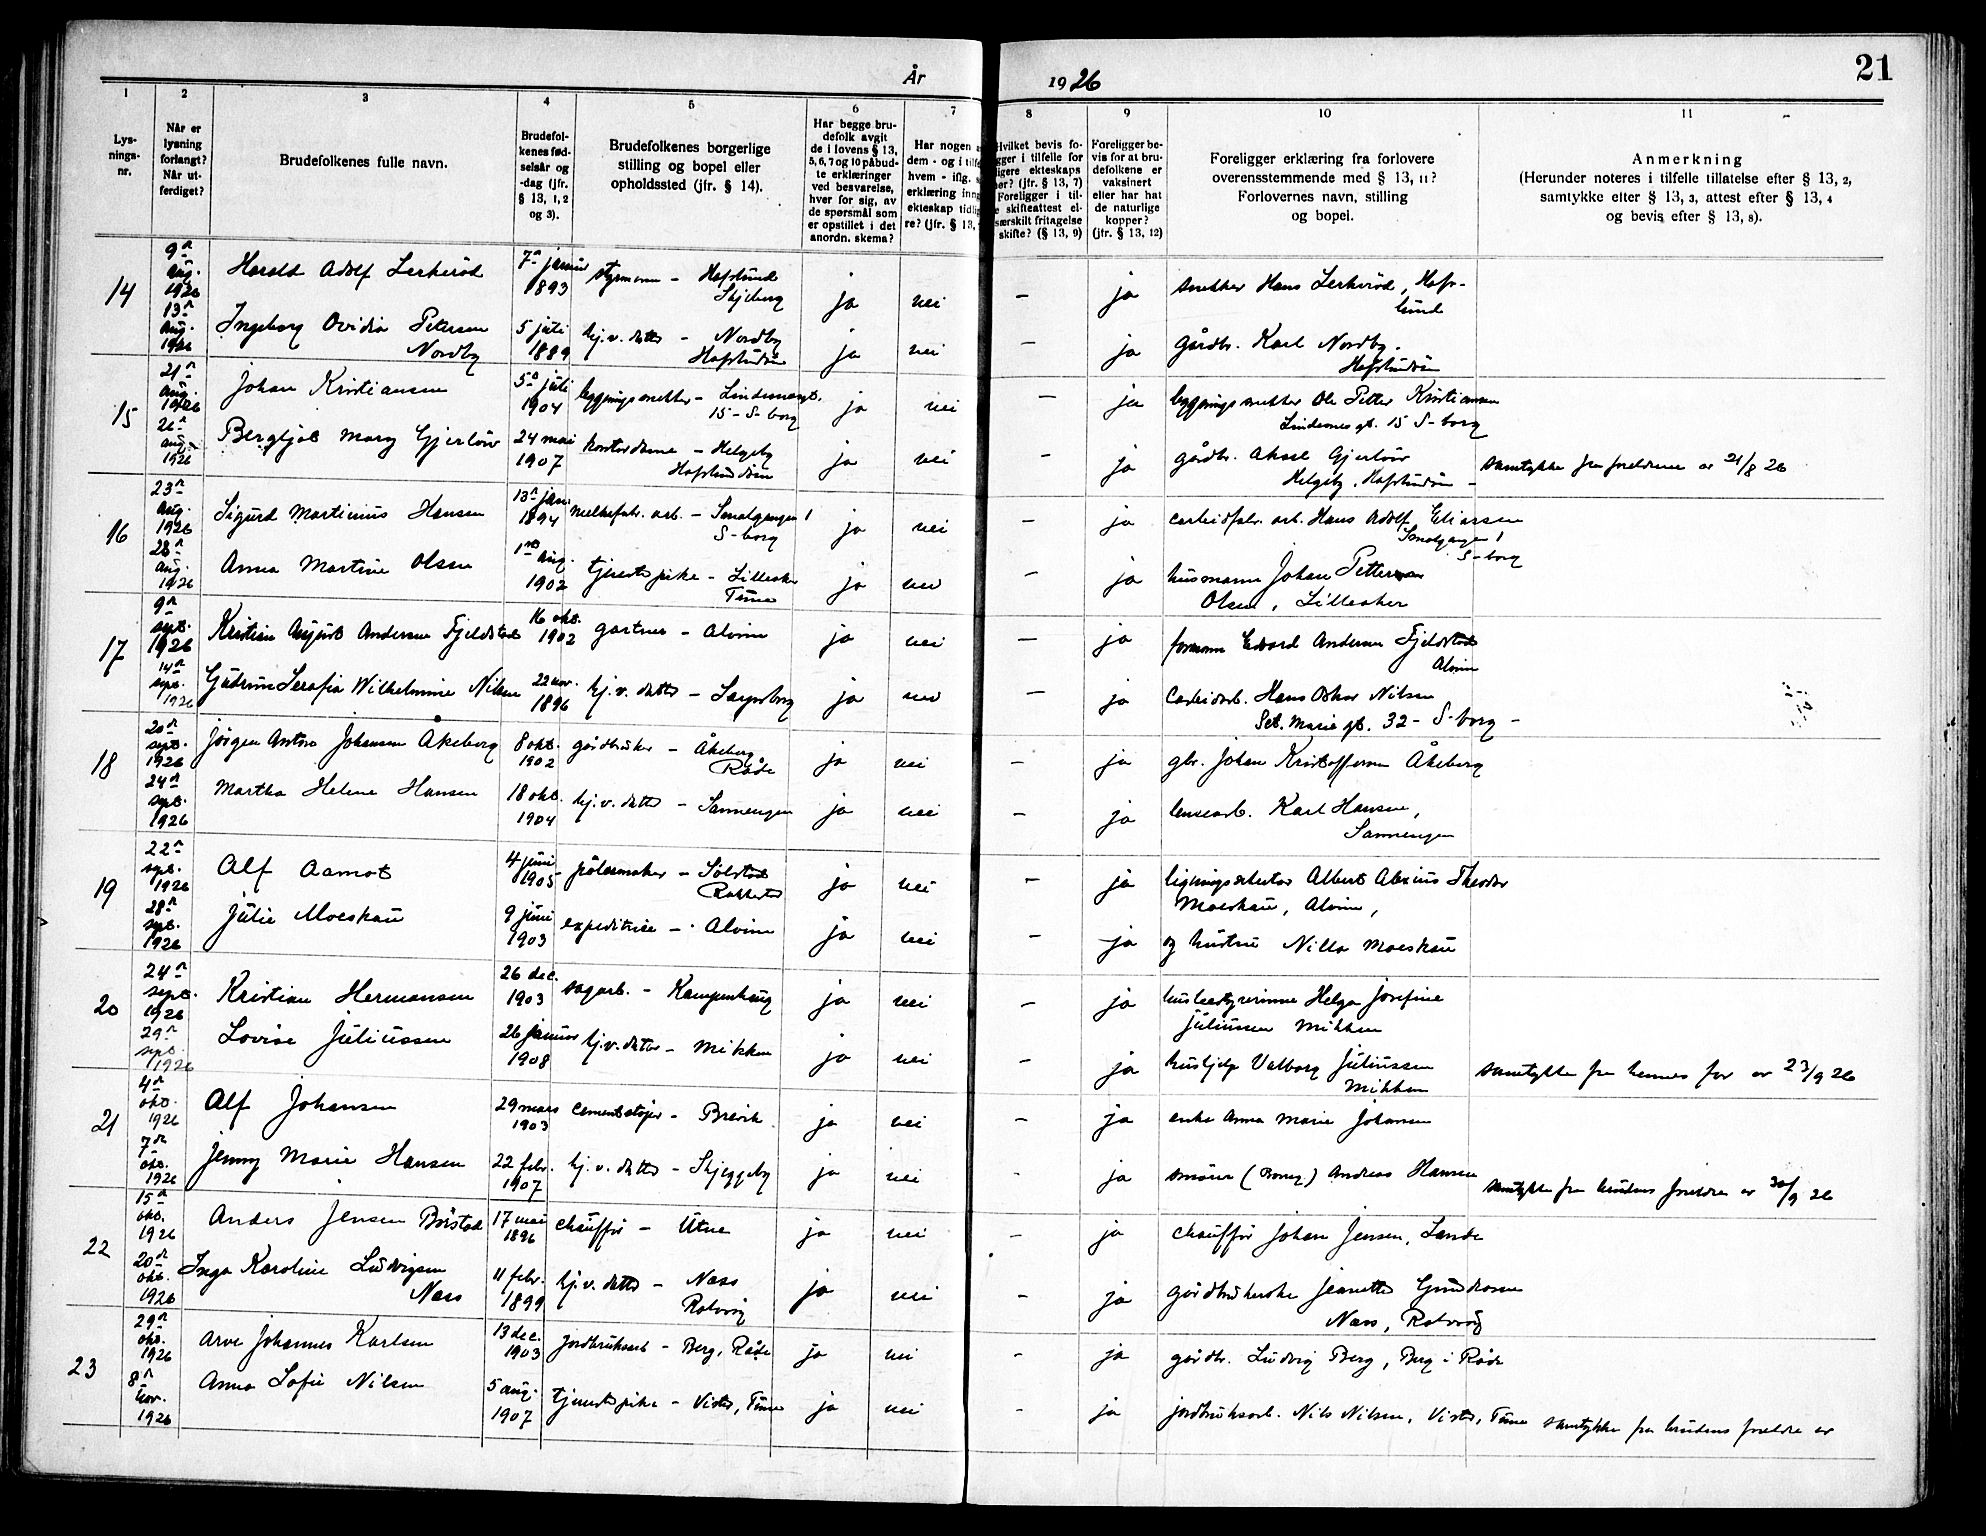 År
1926
21
1
2
3
4
5
6
7
8
9
10
11
Lys-
nings-
nr.
Når er
lysning
forlangt?
Når ut-
ferdiget?
Brudefolkenes fulle navn.
Brudefol-
kenes fød-
selsår og
-dag (jfr.
§ 13, 1, 2
og 3).
Brudefolkenes borgerlige
stilling og bopel eller
opholdssted (jfr. § 14).
Har begge bru-
defolk avgit
de i lovens § 13,
5, 6, 7 og 10 påbud-
te erklæringer
ved besvarelse,
hver for sig, av
de spørsmål som
er opstillet i det
anordn. skema?
Har nogen
dem - og i tilf
hvem - iflg.
erklæring inn
ekteskap tidlig
re? (jfr. § 13,
Hvilket bevis fo-
gger i tilfelle for
ligere ekteskaps
hør? (jfr. § 13, 7)
Foreligger i til-
e skifteattest el-
særskilt fritagelse
skifte? (§ 13, 9)
Foreligger be-
vis for at bru-
defolkene er
vaksinert
eller har hat
de naturlige
kopper?
(jfr. § 13, 12)
Foreligger erklæring fra forlovere
overensstemmende med § 13, 11?
Forlovernes navn, stilling
og bopel.
Anmerkning
(Herunder noteres i tilfelle tillatelse efter § 13, 2,
samtykke efter § 13, 3, attest efter § 13, 4
og bevis efter § 13, 8).
14
9de aug. 1926
13de aug. 1926
Harald Adolf Lerkerød
7de januar 1893
styrmann - Hafslund
Skjeberg
ja nei - ja
snekker Hans Lerkerød, Hafs-
lund
Ingeborg Ovidia Petersen
Nordby
5 juli 1889
hj.v. datter - Nordby
Hafslundsøen
ja nei - ja
gårdbr. Karl Nordby.
Hafslundsøen
15
21de aug. 1926
26de aug. 1926
Johan Kristiansen
5te juli 1904
bygningssnekker - Lindemansgt.
15 - S-borg
ja nei - ja
bygningssnekker Ole Petter Kristiansen
15 S-borg
Bergljot Mary Gjerløv
24 mai 1907
kontordame - Helgeby
Hafslundsøen
ja nei - ja
gårdbr. Aksel Gjerløv
Helgeby, Hafslundsøen -
samtykke fra foreldrene av 21/8 26
16
23de aug. 1926
28de aug. 1926
Sigurd Martinius Hansen
13de jan. 1894
melkefabr. arb. - Smalgangen 1
S-borg
ja nei - ja
carbidfabr. arb. Hans Adolf Eliassen
Smalgangen 1
S-borg
Anna Martine Olsen
1ste aug. 1902
tjenestepike - Lilleaker
Tune
ja nei - ja
husmann Johan Petterson
Olsen, Lilleaker
17
9de sept. 1926
14de sept. 1926
Kristian August Andersen Fjeldstad
16 okt. 1902
gartner - Alvim
ja nei - ja
formann Edvard Andersen Fjeldstad
Alvim
Gudrun Serafia Wilhelmine Nilsen
22 nov. 1896
hj.v. datter - Sarpsborg
ja nei - ja
carbidarb. Hans Oskar Nilsen
Sct. Marie gt. 32 - S-borg -
18
20de sept. 1926
24de sept. 1926
Jørgen Anton Johansen Åkeberg
8 okt. 1902
gårdbruker - Åkeberg
Råde
ja nei - ja
gbr. Johan Kristoffersen Åkeberg
Martha Helene Hansen
18 okt. 1904
hj.v. datter - Sannengen
ja nei - ja
lensearb. Karl Hansen,
Sannengen
19
22de sept. 1926
28de sept. 1926
Alf Aamot
4 juni 1905
pølsemaker - Solstad
Rakkestad
ja nei - ja
ligningssekretær Albert Alexius Theodor
Moeskau, Alvim,
Julie Moeskau
9 juni 1903
expeditrise - Alvim
ja nei - ja
og hustru Nilla Moeskau
20
24de sept. 1926
29de sept. 1926
Kristian Hermansen
26 dec. 1903
sagarb. - Kampenhaug
ja nei - ja
husbestyrerinne Helga Josefine
Juliussen Mikken
Lovise Juliussen
26 januar 1908
hj.v. datter - Mikken
ja nei - ja
hushjelp Valborg Juliussen
Mikken
samtykke fra hennes far av 23/9 26
21
4de okt. 1926
7de okt. 1926
Alf Johansen
29 mars 1903
cementstøper - Brevik
ja nei - ja
enke Anna Marie Johansen
Jenny Marie Hansen
22 febr. 1907
hj.v. datter - Skjeggeby
ja nei - ja
smører (Borreg.) Andreas Hansen
samtykke fra brudens foreldre av 30/9 26
22
15de okt. 1926
20de okt. 1926
Anders Jensen Børstad
17 mai 1896
chauffør - Utne
ja nei - ja
chauffør Johan Jensen, Lande
Inga Karoline Ludvigsen
Næss
11 febr. 1899
hj.v. datter - Næss
Rolvsøy
ja nei - ja
gårdbrukerske Jeanette Gundersen
Næss, Rolvsøy
23
29de okt. 1926
8de nov. 1926
Arve Johannes Karlsen
13 dec. 1903
jordbruksarb. - Berg, Råde
ja nei - ja
gårdbr. Ludvig Berg, Berg i Råde
Anna Sofie Nilsen
5 aug. 1907
tjenestepike - Vister, Tune
ja nei - ja
jordbruksarb. Nils Nilsen, Vister, Tune
samtykke fra brudens foreldre av